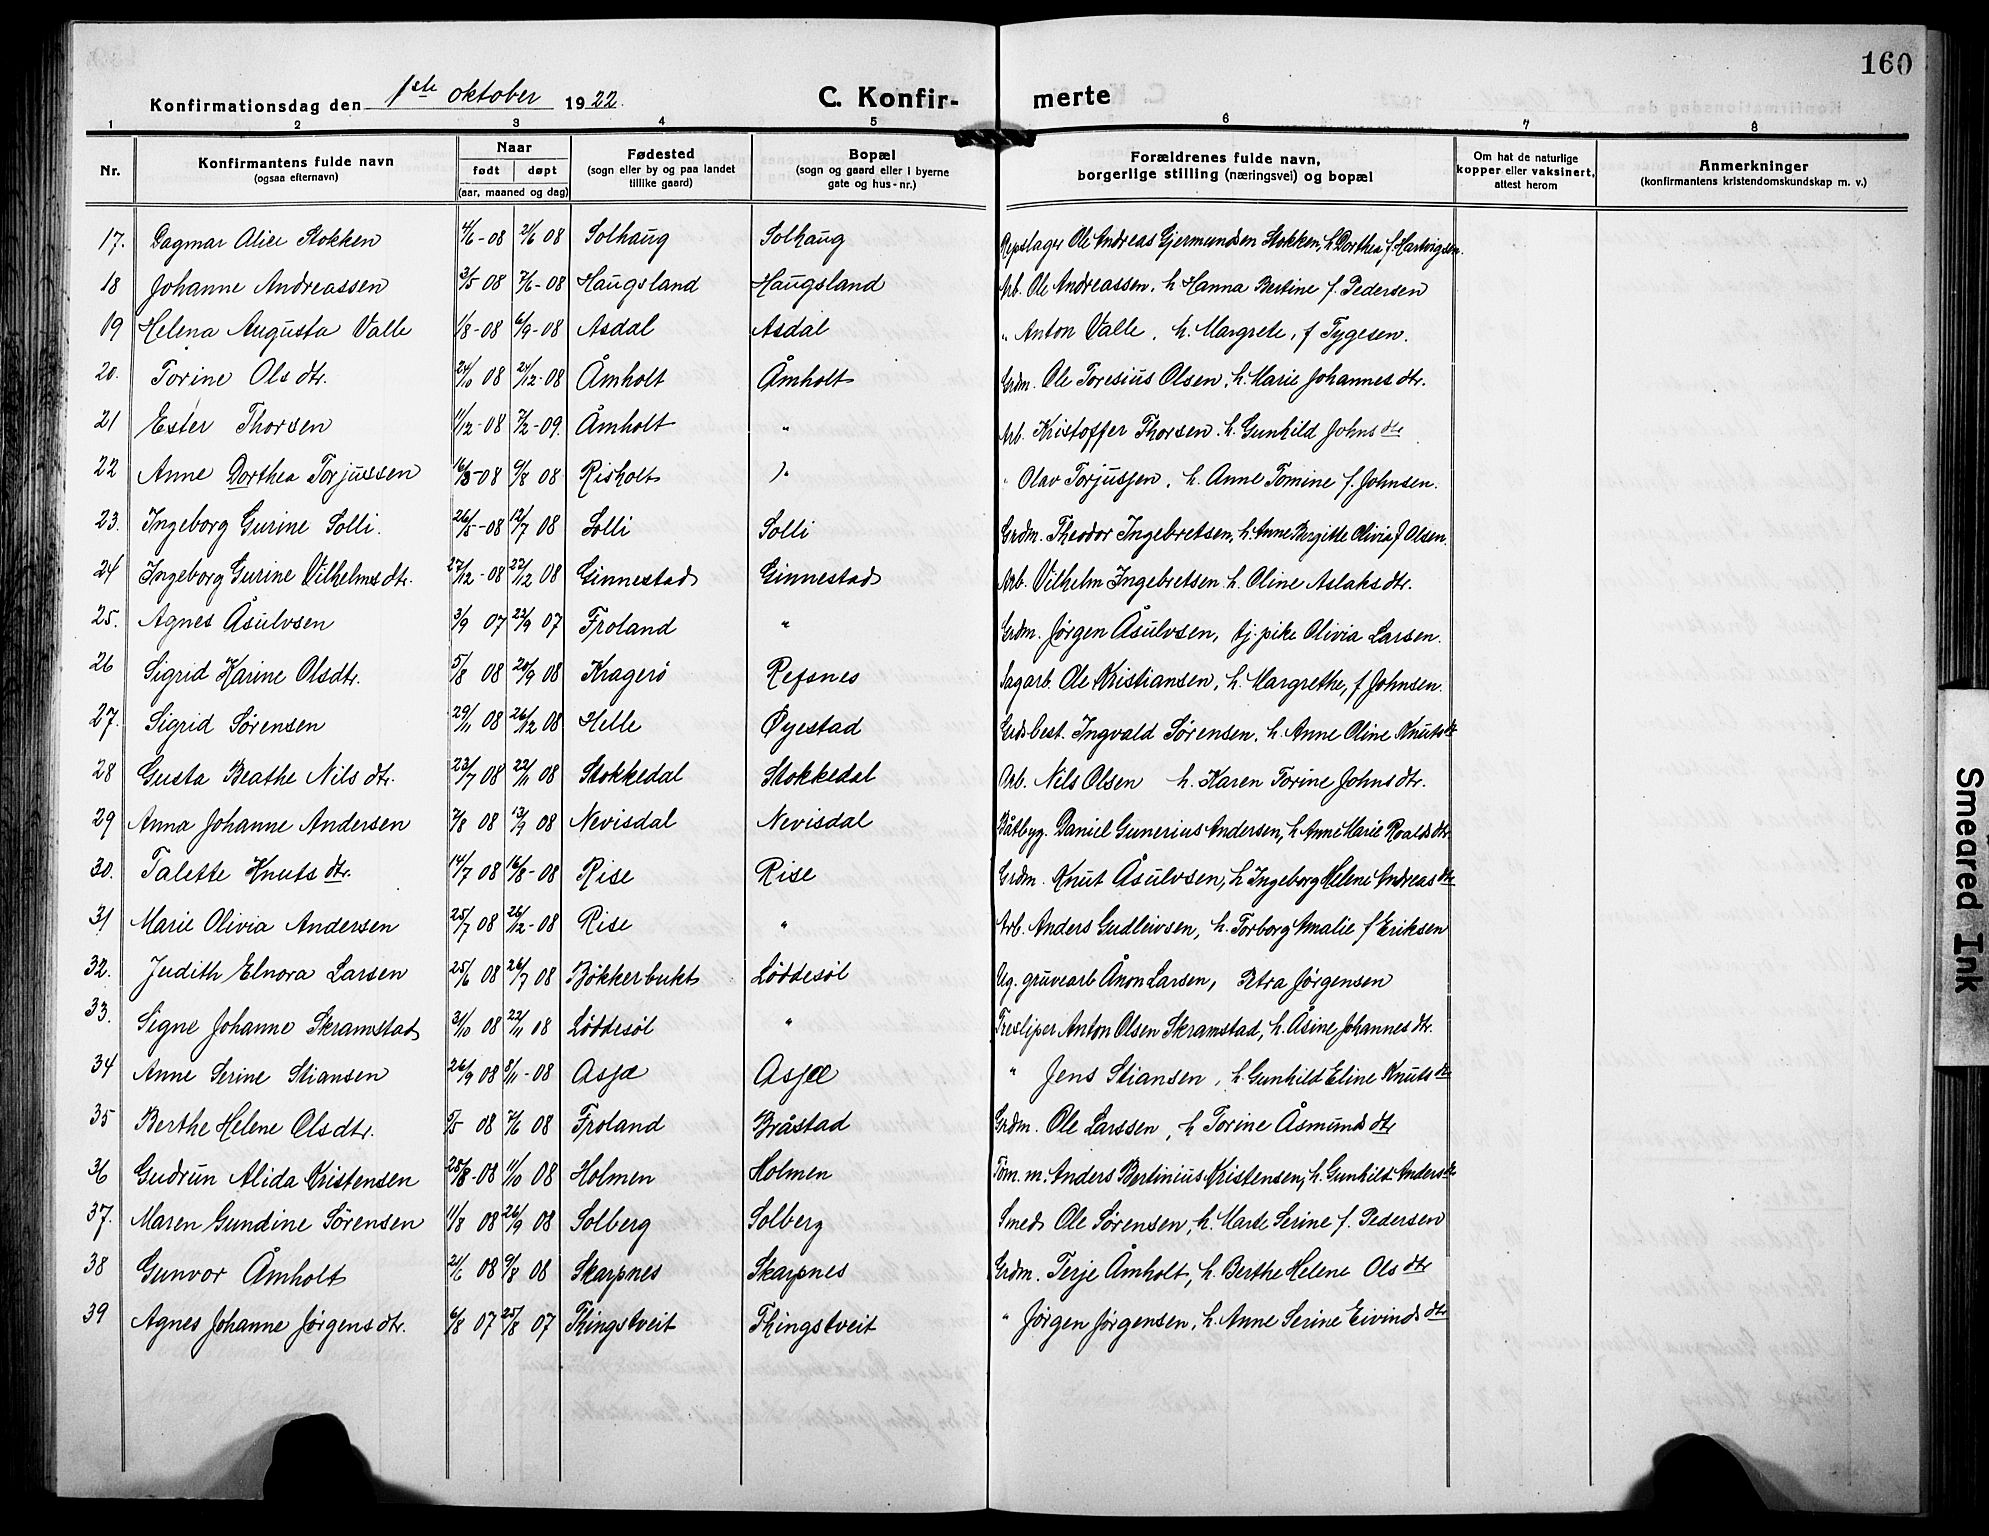 160
Konfirmationsdag den 1ste oktober 1922. C. Konfirmerte
1 2 3 4 5 6 7 8
Nr. Konfirmantens fulde navn (ogsaa efternavn) Naar født døpt (aar, maaned og dag) Fødested (sogn eller by og paa landet tillike gaard) Bopæl (sogn og gaard eller i byerne gate og hus-nr.) Forældrenes fulde navn, borgerlige stilling (næringsvei) og bopæl Om hat de naturlige kopper eller vaksinert, attest herom Anmerkninger (konfirmantens kristendomskundskap m. v.)
17. Dagmar Alice Stokken 4/6-08 21/6 08 Solhaug Solhaug Repslager Ole Andreas Gjermundsen Stokken, h. Dorthea f. Hartvigsen.
18 Johanne Andreassen 3/5 08 7/6-08 Haugsland Haugsland Arb. Ole Andreassen, h Hanna Bertine f. Pedersen
19 Helena Augusta Valle 1/8-08 6/9-08 Asdal Asdal " Anton Valle, h. Margrete, f Tygesen.
20. Torine Olsdtr. 24/10 08 24/12-08 Åmholt Åmholt Grdm. Ole Toresius Olsen, h. Marie Johannesdtr.
21 Ester Thorsen 11/12-08 7/2-09. Åmholt " Arb. Kristoffer Thorsen. h. Gunhild Johnsdtr
22 Anne Dorthea Torjussen 16/3-08 9/8 08 Risholt " " Olav Torjussen, h. Anne Tomine f. Johnsen.
23. Ingeborg Gurine Solli. 26/5-08 12/7 08 Solli Solli Grdm. Theodor Ingebretsen, h. Anne Birgitte Olivia f Olsen.
24 Ingeborg Gurine Vilhelmsdtr. 27/12-08 27/12 08 Ginnestad Ginnestad Arb. Vilhelm Ingebretsen h. Oline Aslaksdtr.
25. Agnes Åsulvsen 3/9 07 22/9 07 Froland " Grdm. Jørgen Åsulvsen, tj. pike Olivia Larsen.
26 Sigrid Karine Olsdtr. 5/8 08 20/9 08 Kragerö Refsnes Sagarb. Ole Kristiansen, h. Margrethe, f Johnsen.
27. Sigrid Sørensen 29/11 08 26/12 08 Helle Øyestad Grdsbest. Ingvald Sørensen. h. Anne Oline Knutsdtr
28 Gusta Beathe Nilsdtr. 23/7 08 22/11 08 Stokkedal Stokkedal Arb. Nils Olsen h. Karen Torine Johnsdtr.
29 Anna Johanne Andersen 7/8 08 13/9 08 Nevisdal Nevisdal Båtbyg. Daniel Gunerius Andersen, h Anne Marie Roaldsdtr
30. Talette Knutsdtr. 14/7 08 16/8-08 Rise Rise Grdm. Knut Åsulvsen, h Ingeborg Helene Andreasdtr
31 Marie Olivia Andersen 25/7 08 26/12-08 Rise " Arb. Anders Gudleivsen, h. Torborg Amalie f Eriksen
32. Judith Elnora Larsen 25/6 08 26/7 08 Bøkkerbukt Løddesøl Ug. gruvearb Ånon Larsen, Petra Jørgensen
33. Signe Johanne Skramstad 31/10 08 22/11 08 Løddesøl " Tresliper Anton Olsen Skramstad, h. Åsine Johannesdtr.
34 Anne Serine Stiansen 26/9 08 8/11-08 Asjæ Asjæ " Jens Stiansen, h. Gunhild Eline Knutsdtr
35 Berthe Helene Olsdtr. 9/5 08 7/6 08 Froland Bråstad Grdm. Ole Larssen, h Torine Åsmundsdtr
36 Gudrun Alida Kristensen 28/8-08 11/10 08 Holmen Holmen Töm. m. Anders Bertinius Kristensen, h. Gunhild Andersdtr
37. Maren Gundine Sørensen 11/8 08 26/9 08 Solberg Solberg Smed Ole Sørensen, h. Marte Serine f. Pedersen
38 Gunvor Åmholt 21/6 08 9/8 08 Skarpnes Skarpnes Grdm. Terje Åmholt, h. Berthe Helene Olsdtr
39 Agnes Johanne Jørgensdtr. 6/8 07 25/8 07 Thingstveit Thingstveit " Jørgen Jørgensen, h. Anne Serine Eivindsdtr
Smeared Ink